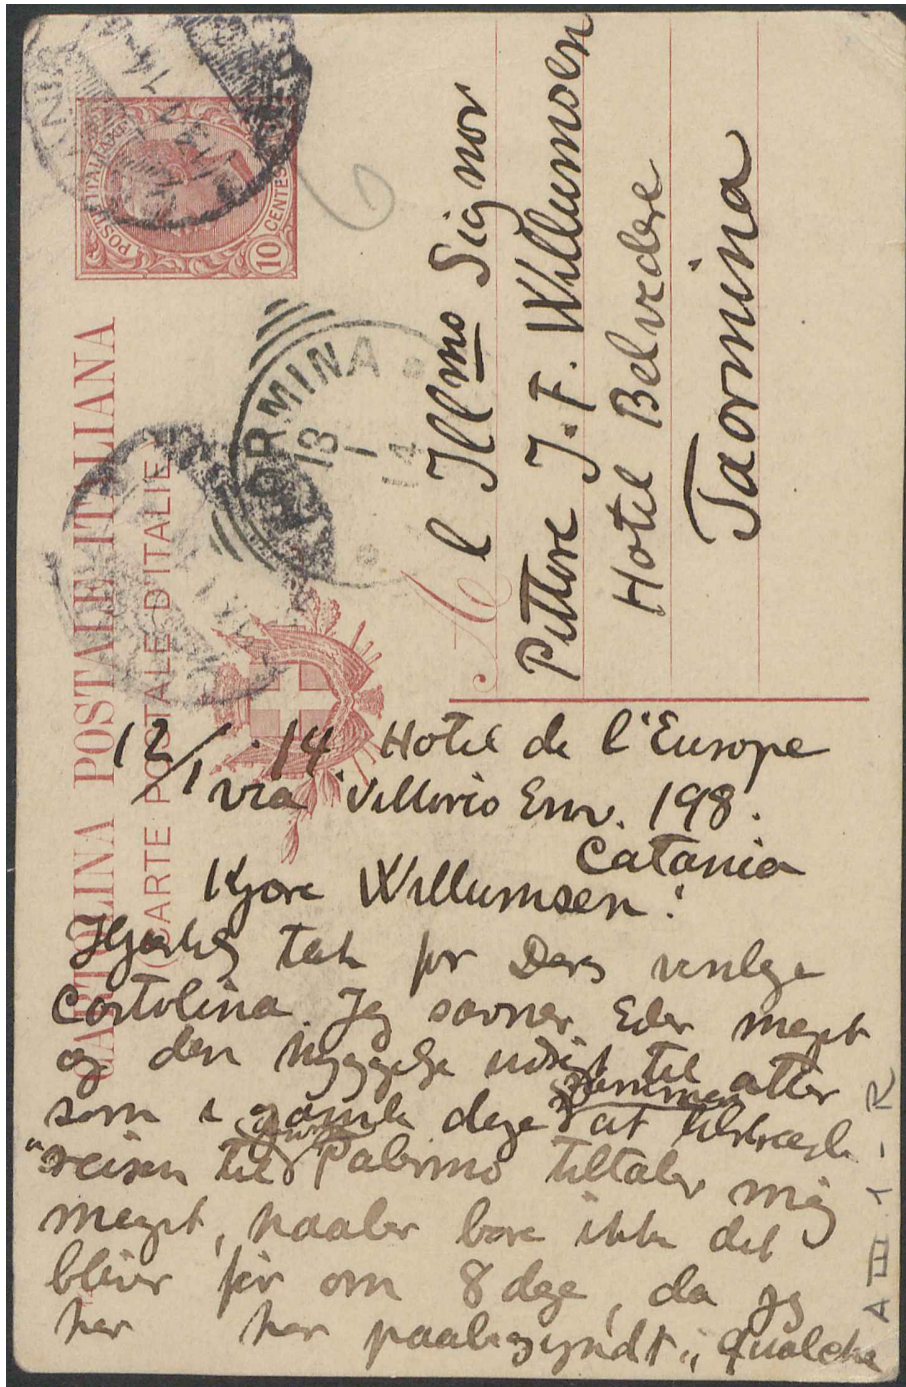 POSTE ITALIANE
10 CENTES
CARTOLINA POSTALE ITALIANA
(CARTE POSTALE D'ITALIE)
TAORMINA
13 1 14
6
All Illmo Signor
Pittore J. F. Willumsen
Hotel Belvedere
Taormina
12/1 14 Hotel de l'Europe
via Vittorio Em. 198.
Catania
Kjære Willumsen!
Hjertelig tak for Deres venlige
Cartolina. Jeg savner Eder meget
og den hyggelige udsigt til atter
som i gamle dage sammen at tilbringe
reisen til Palermo tiltaler mig
meget, haaber bare ikke det
bliver før om 8 dage, da jeg
her har paabegyndt „qualche
A III 1 - R